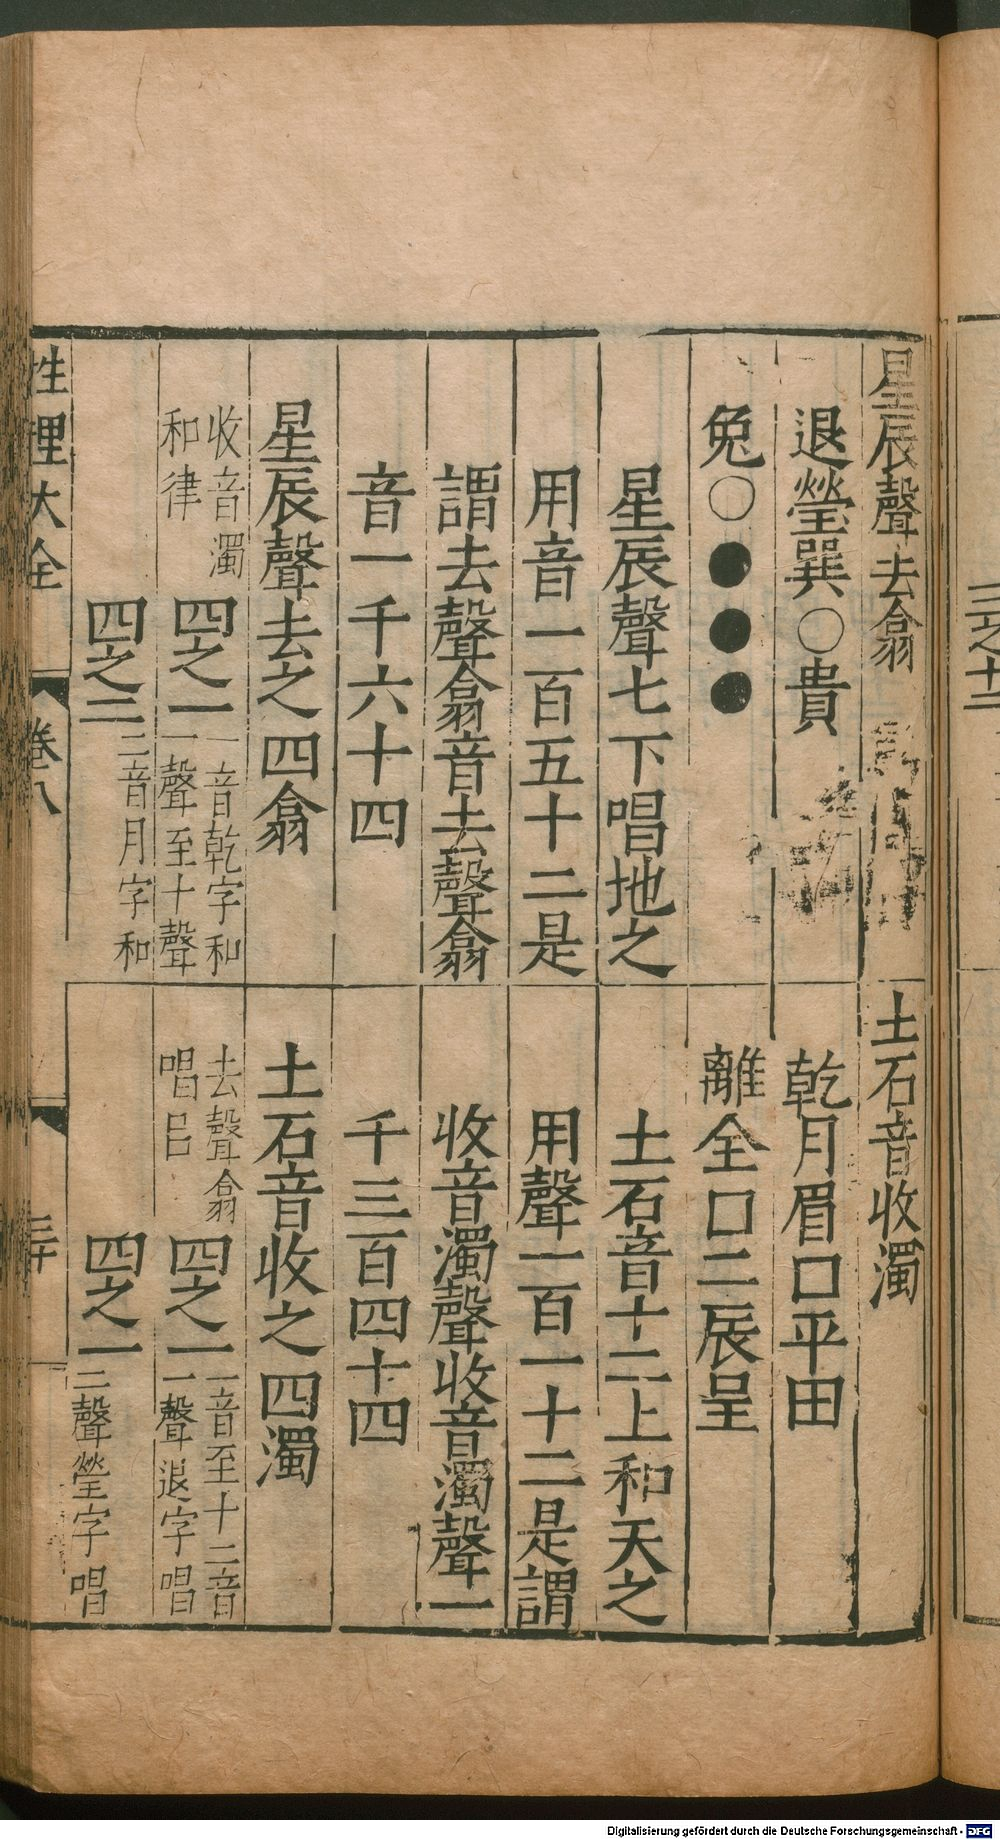 星辰聲去翕
退瑩巽○貴
兔○●●●
星辰聲七下唱地之
用音一百五十二是
謂去聲翕音去聲翕
音一千六十四
星辰聲去之四翕
收音濁
和律
四之一
一音乾字和
一聲至十聲
四之二
二音月字和
土石音收濁
乾月眉口平田
離全口二辰呈
土石音十二上和天之
用聲一百一十二是謂
收音濁聲收音濁聲一
千三百四十四
土石音收之四濁
去聲翕
唱呂
四之一
一音至十二音
一聲退字唱
四之一
二聲瑩字唱
性理大全
卷八
三十
三之十二
Digitalisierung gefördert durch die Deutsche Forschungsgemeinschaft - DFG